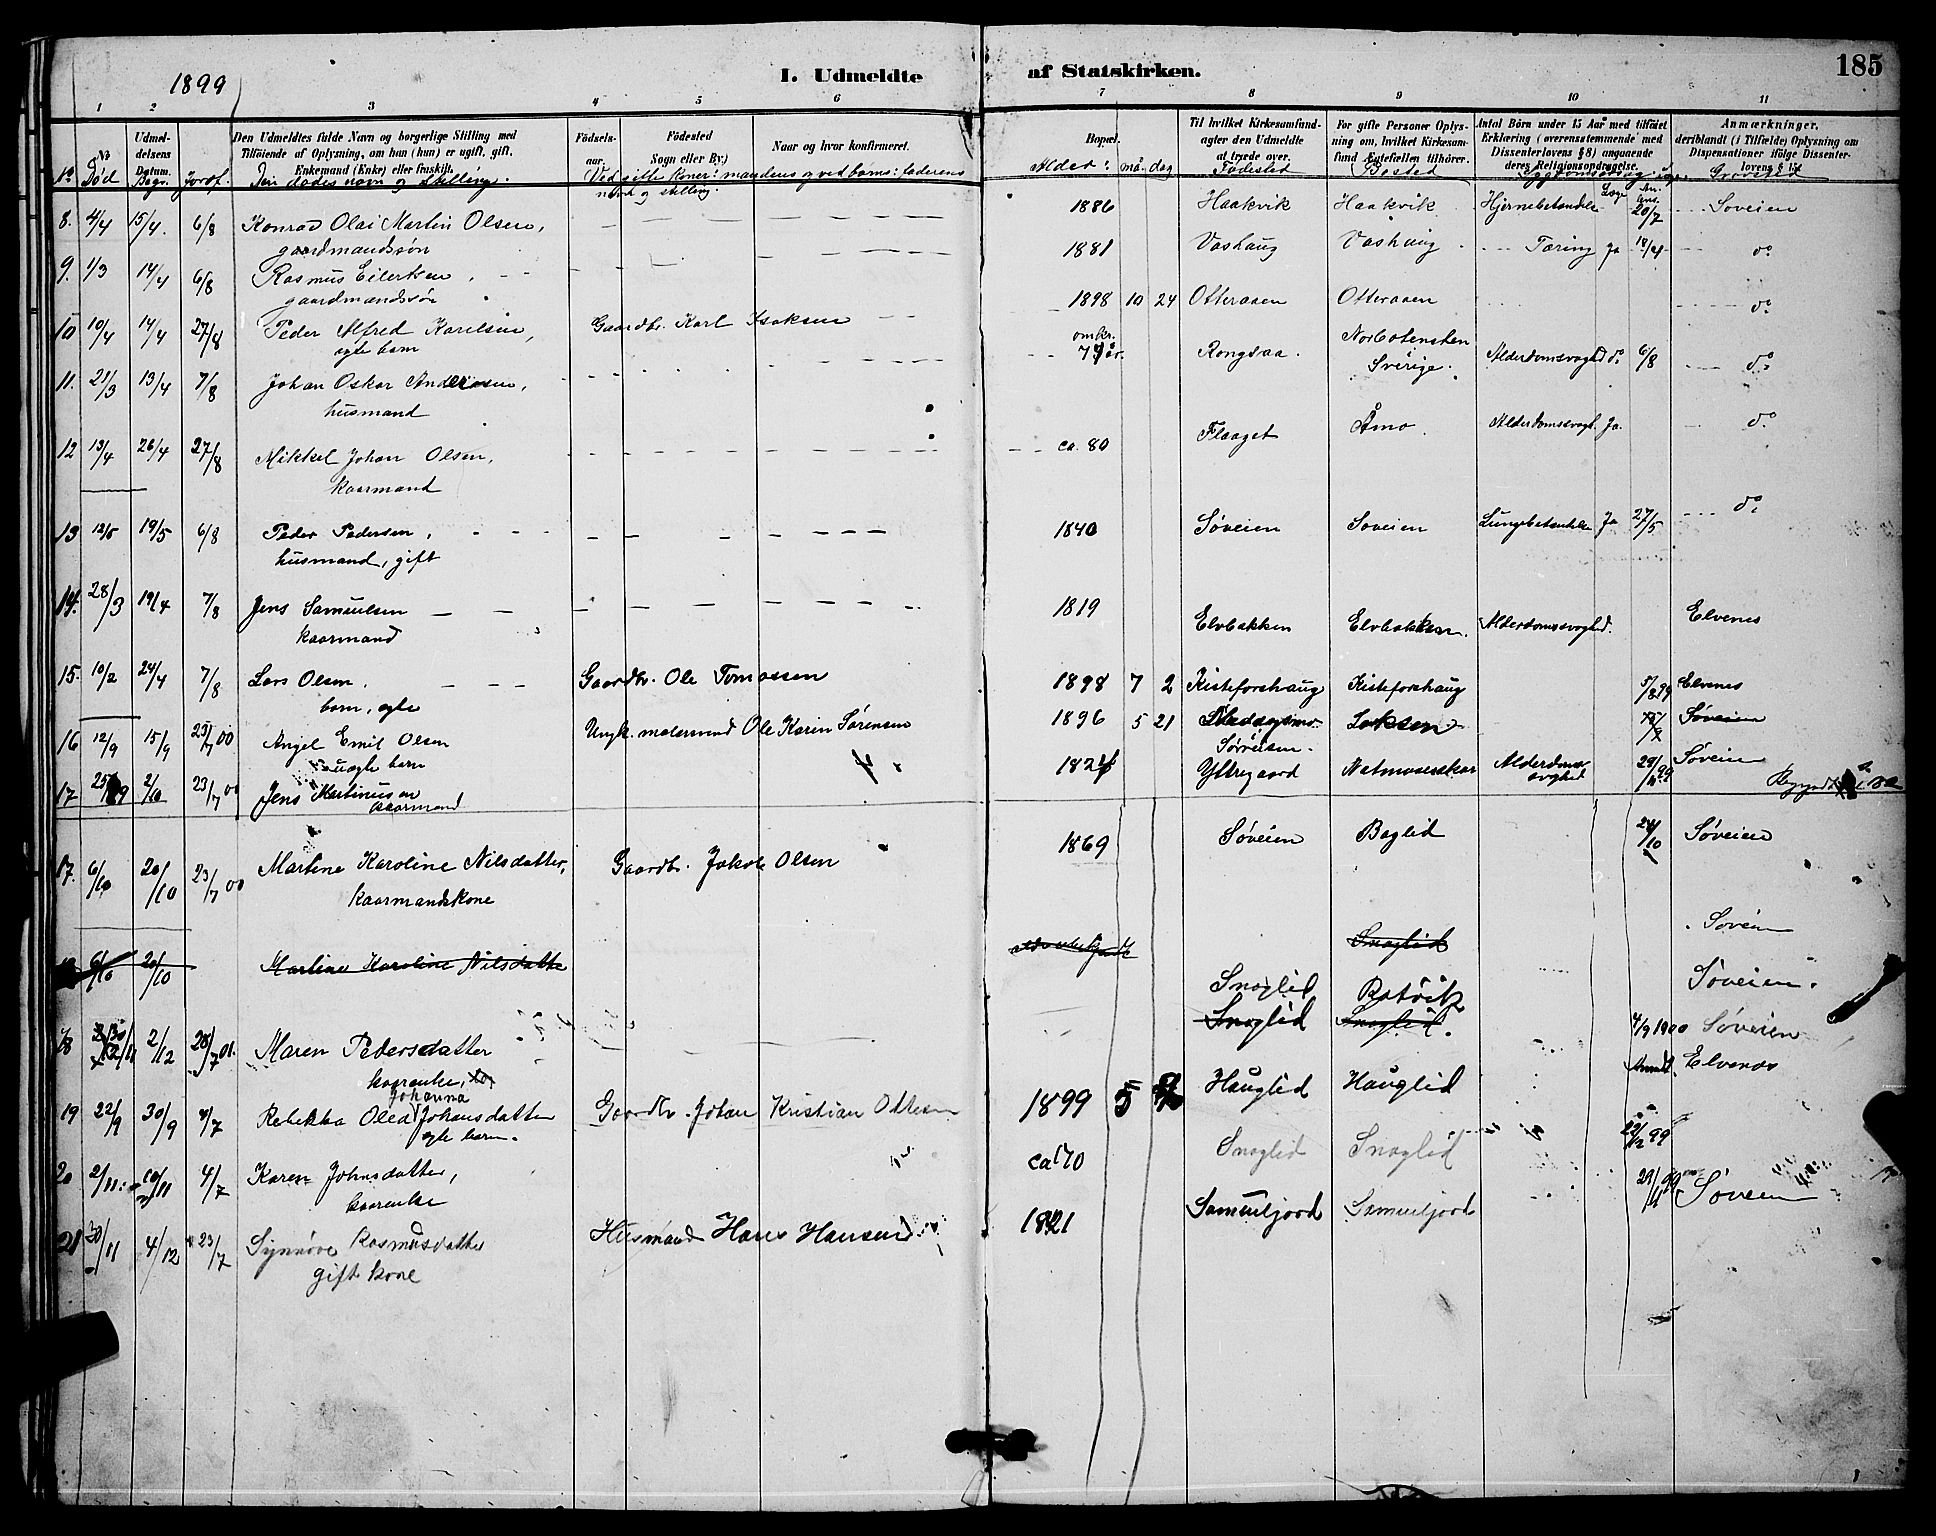 1899
I. Udmeldte af Statskirken.
185
1 2 3 4 5 6 7 8 9 10 11
No Død
Udmeldelsens Datum. Begr.
Jordf.
Den Udmeldtes fulde Navn og borgerlige Stilling med Tilföiende af Oplysning, om han (hun) er ugift, gift, Enkemand (Enke) eller fraskilt.
Den dødes navn og stilling.
Födsels-aar.
Födested Sogn eller By.)
Naar og hvor konfirmeret.
Ved gifte koner: mandens og ved barns: faderens navn og stilling.
Bopæl.
Alder: må. dag
Til hvilket Kirkesamfund agter den Udmeldte at træde over.
Fødested
For gifte Personer Oplysning om, hvilket Kirkesamfund Ægtefællen tilhörer.
Bosted
Antal Börn under 15 Aar med tilföiet Erklæring (overensstemmende med Dissenterlovens § 8) angaaende deres Religionsopdragelse.
Læge
Anmærkninger, deriblandt (i Tilfælde) Oplysning om Dispensationer ifölge Dissenterlovens § 15
Gravsted
8. 4/4 15/4. 6/8 Konrad Olai Martin Olsen, gaardmandssøn 1886 Haakvik Haakvik Hjernebetændelse 20/7 Soveien
9. 1/3 14/4 6/8 Rasmus Eilertsen, gaardmandssøn 1881 Vashaug Vashaug Tæring Ja do
10 10/4 14/4 27/8 Peder Alfred Karelsen, egte barn Gaardbr. Karl Isaksen 1898 10 24 Otteraaen Otteraaen do
11. 21/3 13/4 7/8 Johan Oskar Andersen, husmand omkr. 74 år. Rongsaa. Norbotensten Sverige. Alderdomssvaghed do 6/8 do
12 13/4 26/4 27/8 Mikkel Johan Olsen, kaarmand ca. 80 Flaaget Åmo Alderdomssvagh. Ja. do
13 12/5 19/5 6/8 Peder Pedersen, husmand, gift 1840 Søveien Soveien Lungebetændelse Ja 27/5 do
14. 28/3 19/4 7/8 Jens Samuelsen kaarmand 1819 Elvbakken Elvbakken. Alderdomssvaghed. Elvenes
15. 10/2 24/4 7/8 Lars Olsen. barn, egte Gaardbr. Ole Tomassen 1898 7 2 Kisteforshaug Kisteforshaug 5/8 99 Elvenes
16 12/9 15/9 23/7 00 Angel Emil Olsen uægte barn Ungk. malersvend Ole Karin Sørensen 1896 5 21 Sørreisen. Søveien
17. 2/10 23/7 00 Jens Martinussen kaarmand 1824 Yttregaard Alderdomssvaghed 99 Søveien
17. 6/10 20/10 23/7 00 Martine Karoline Nilsdatter, kaarmandskone Gaardbr. Jakob Olsen 1869 Søveien Baglid 24/10 Søveien
6/10 20/10 Martine Karoline Nilsdatter Snaglid Soveien
Snaglid Rotvik Søveien.
18 2/12 28/7 01. Maren Pedersdatter kaarenke, Snaglid Snaglid. 4/9 1900 Søveien
19 22/9 30/9 4/7 Rebekka Olea Johanna Johansdatter egte barn. Gaardbr. Johan Kristian Ottesen 1899 5 Hauglid Hauglid Anmeldt. Elvenes
20 2/11. 4/7 Karen Johnsdatter, kaarenke ca 70 Snaglid Snaglid 22/12 99
21 30/11 4/12 23/7 Synnøve Rasmusdatter gift kone Husmand Hans Hansen 1821 Samueljord Samueljord 29/11 99 Søveien